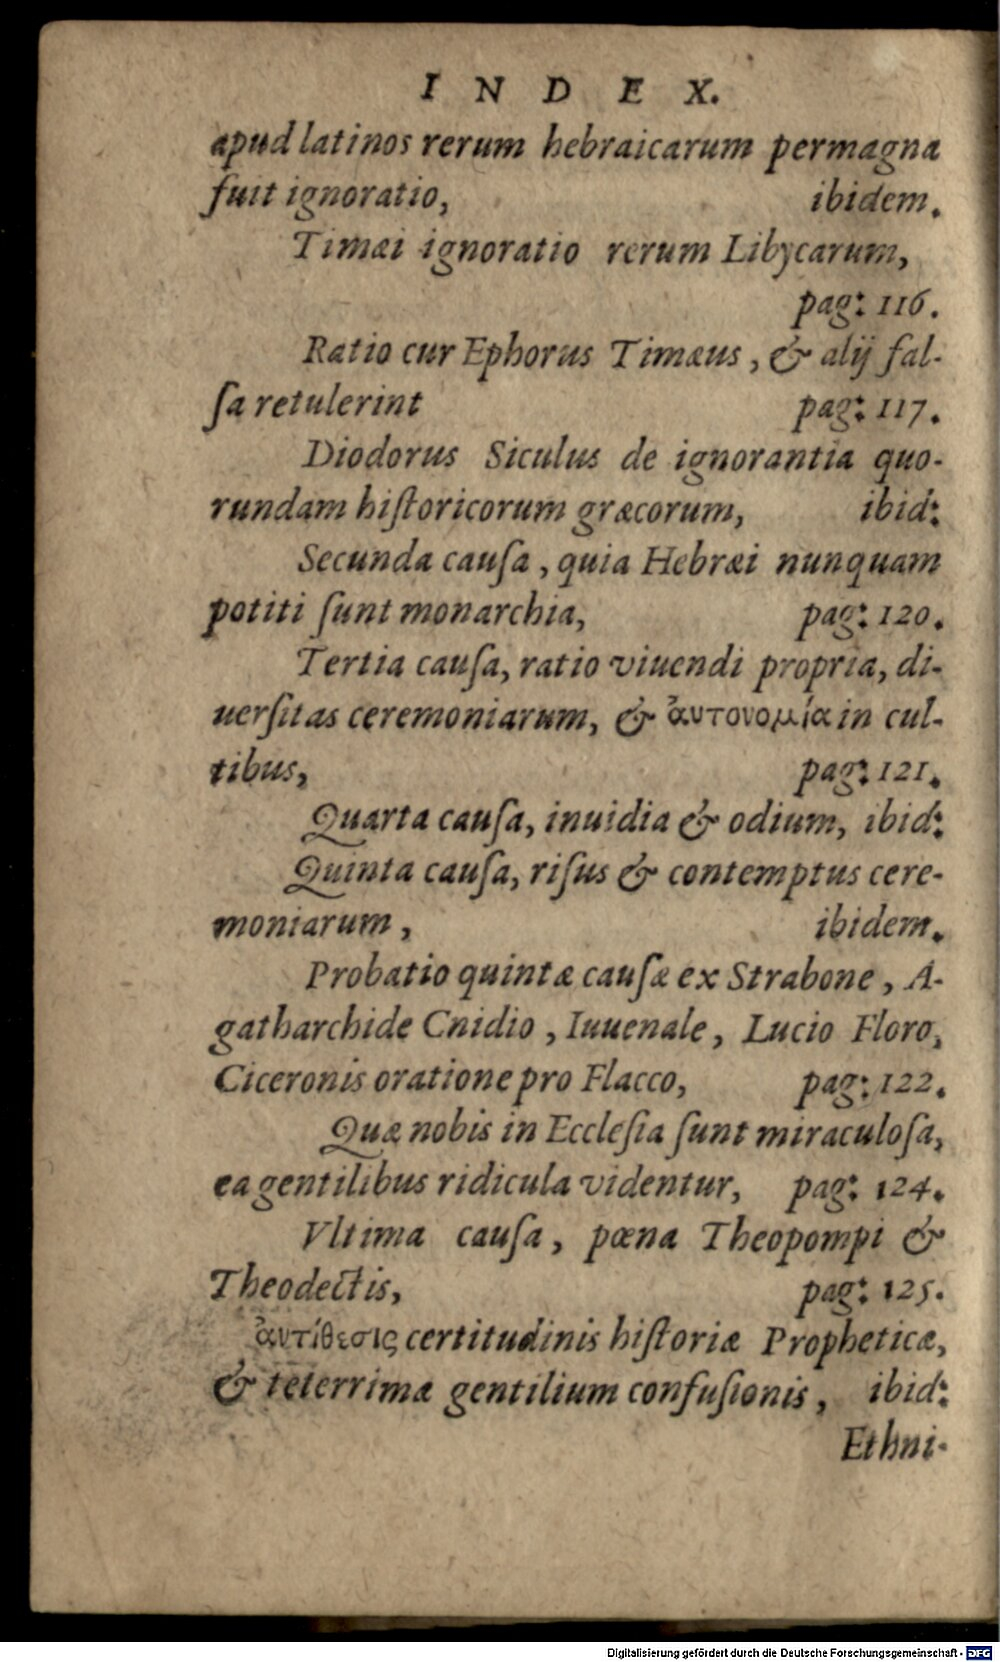 INDEX.
apud latinos rerum hebraicarum permagna
fuit ignoratio, ibidem.
Timæi ignoratio rerum Libycarum,
pag: 116.
Ratio cur Ephorus Timæus, & alij fal-
ſa retulerint pag: 117.
Diodorus Siculus de ignorantia quo-
rundam hiſtoricorum græcorum, ibid:
Secunda cauſa, quia Hebræi nunquam
potiti ſunt monarchia, pag: 120.
Tertia cauſa, ratio viuendi propria, di-
uerſitas ceremoniarum, & ἀυτονομία in cul-
tibus, pag: 121.
Quarta cauſa, inuidia & odium, ibid:
Quinta cauſa, riſus & contemptus cere-
moniarum, ibidem.
Probatio quintæ cauſæ ex Strabone, A-
gatharchide Cnidio, Iuuenale, Lucio Floro,
Ciceronis oratione pro Flacco, pag: 122.
Quæ nobis in Eccleſia ſunt miraculoſa,
ea gentilibus ridicula videntur, pag: 124.
Vltima cauſa, pœna Theopompi &
Theodectis, pag: 125.
ἀντίθεσις certitudinis hiſtoriæ Propheticæ,
& teterrimæ gentilium confuſionis, ibid:
Ethni-
Digitalisierung gefördert durch die Deutsche Forschungsgemeinschaft - DFG